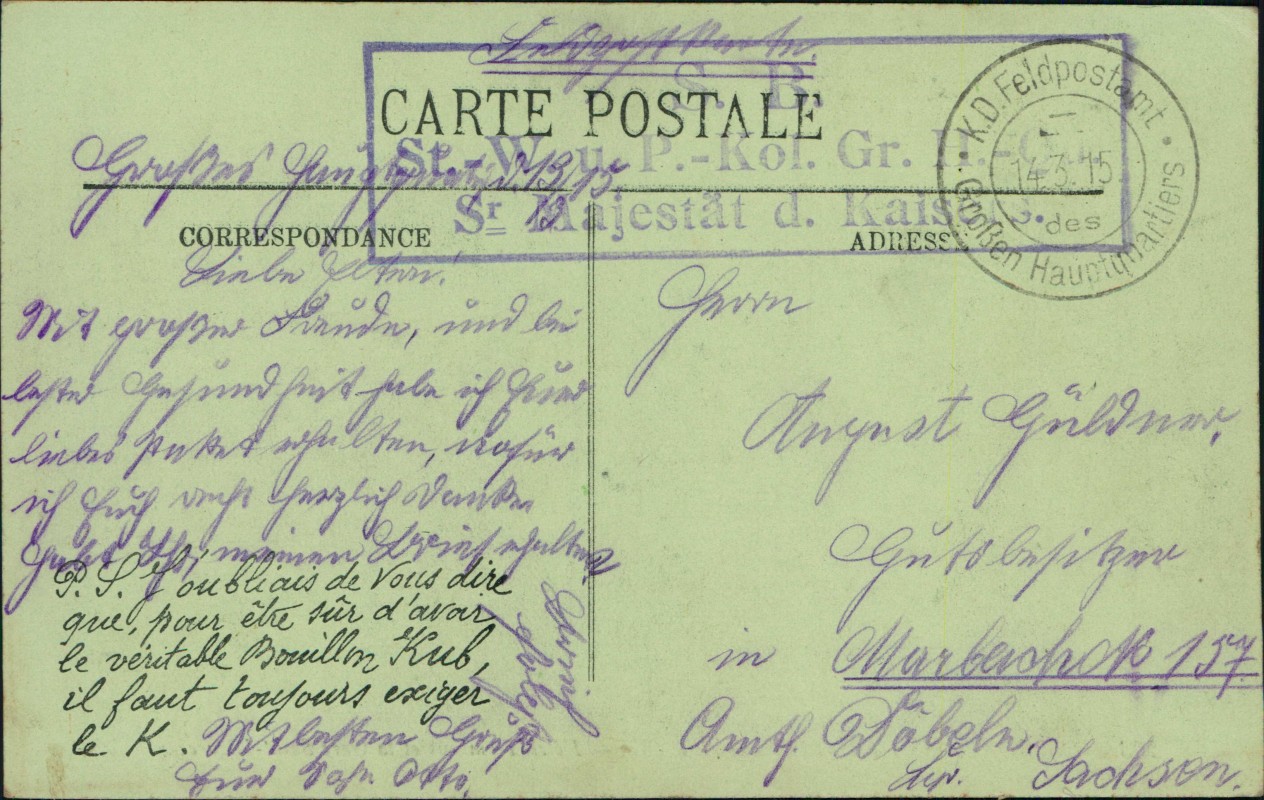 Feldpostkarte.
CARTE POSTALE
S. B.
St.-W. u. P.-Kol. Gr. H.-Qu.
Sr. Majestät d. Kaisers.
K.D. Feldpostamt
14.3.15
des
Großen Hauptquartiers
Großes Hauptquart. d. 13/3 15
CORRESPONDANCE
Liebe Eltern!
Mit großer Freude, und bei
bester Gesundheit habe ich Euer
liebes Paket erhalten, wofür
ich Euch recht herzlich Danke.
Habt Ihr meinen Brief erhalten
P.S. J'oubliais de vous dire
que, pour être sûr d'avoir
le véritable Bouillon Kub,
il faut toujours exiger
le K.
Mit besten Gruß
Euer Sohn Otto.
ADRESSE
Herrn
August Güldner,
Gutsbesitzer
in Marbach 157
Amth. Döbeln.
Sachsen.